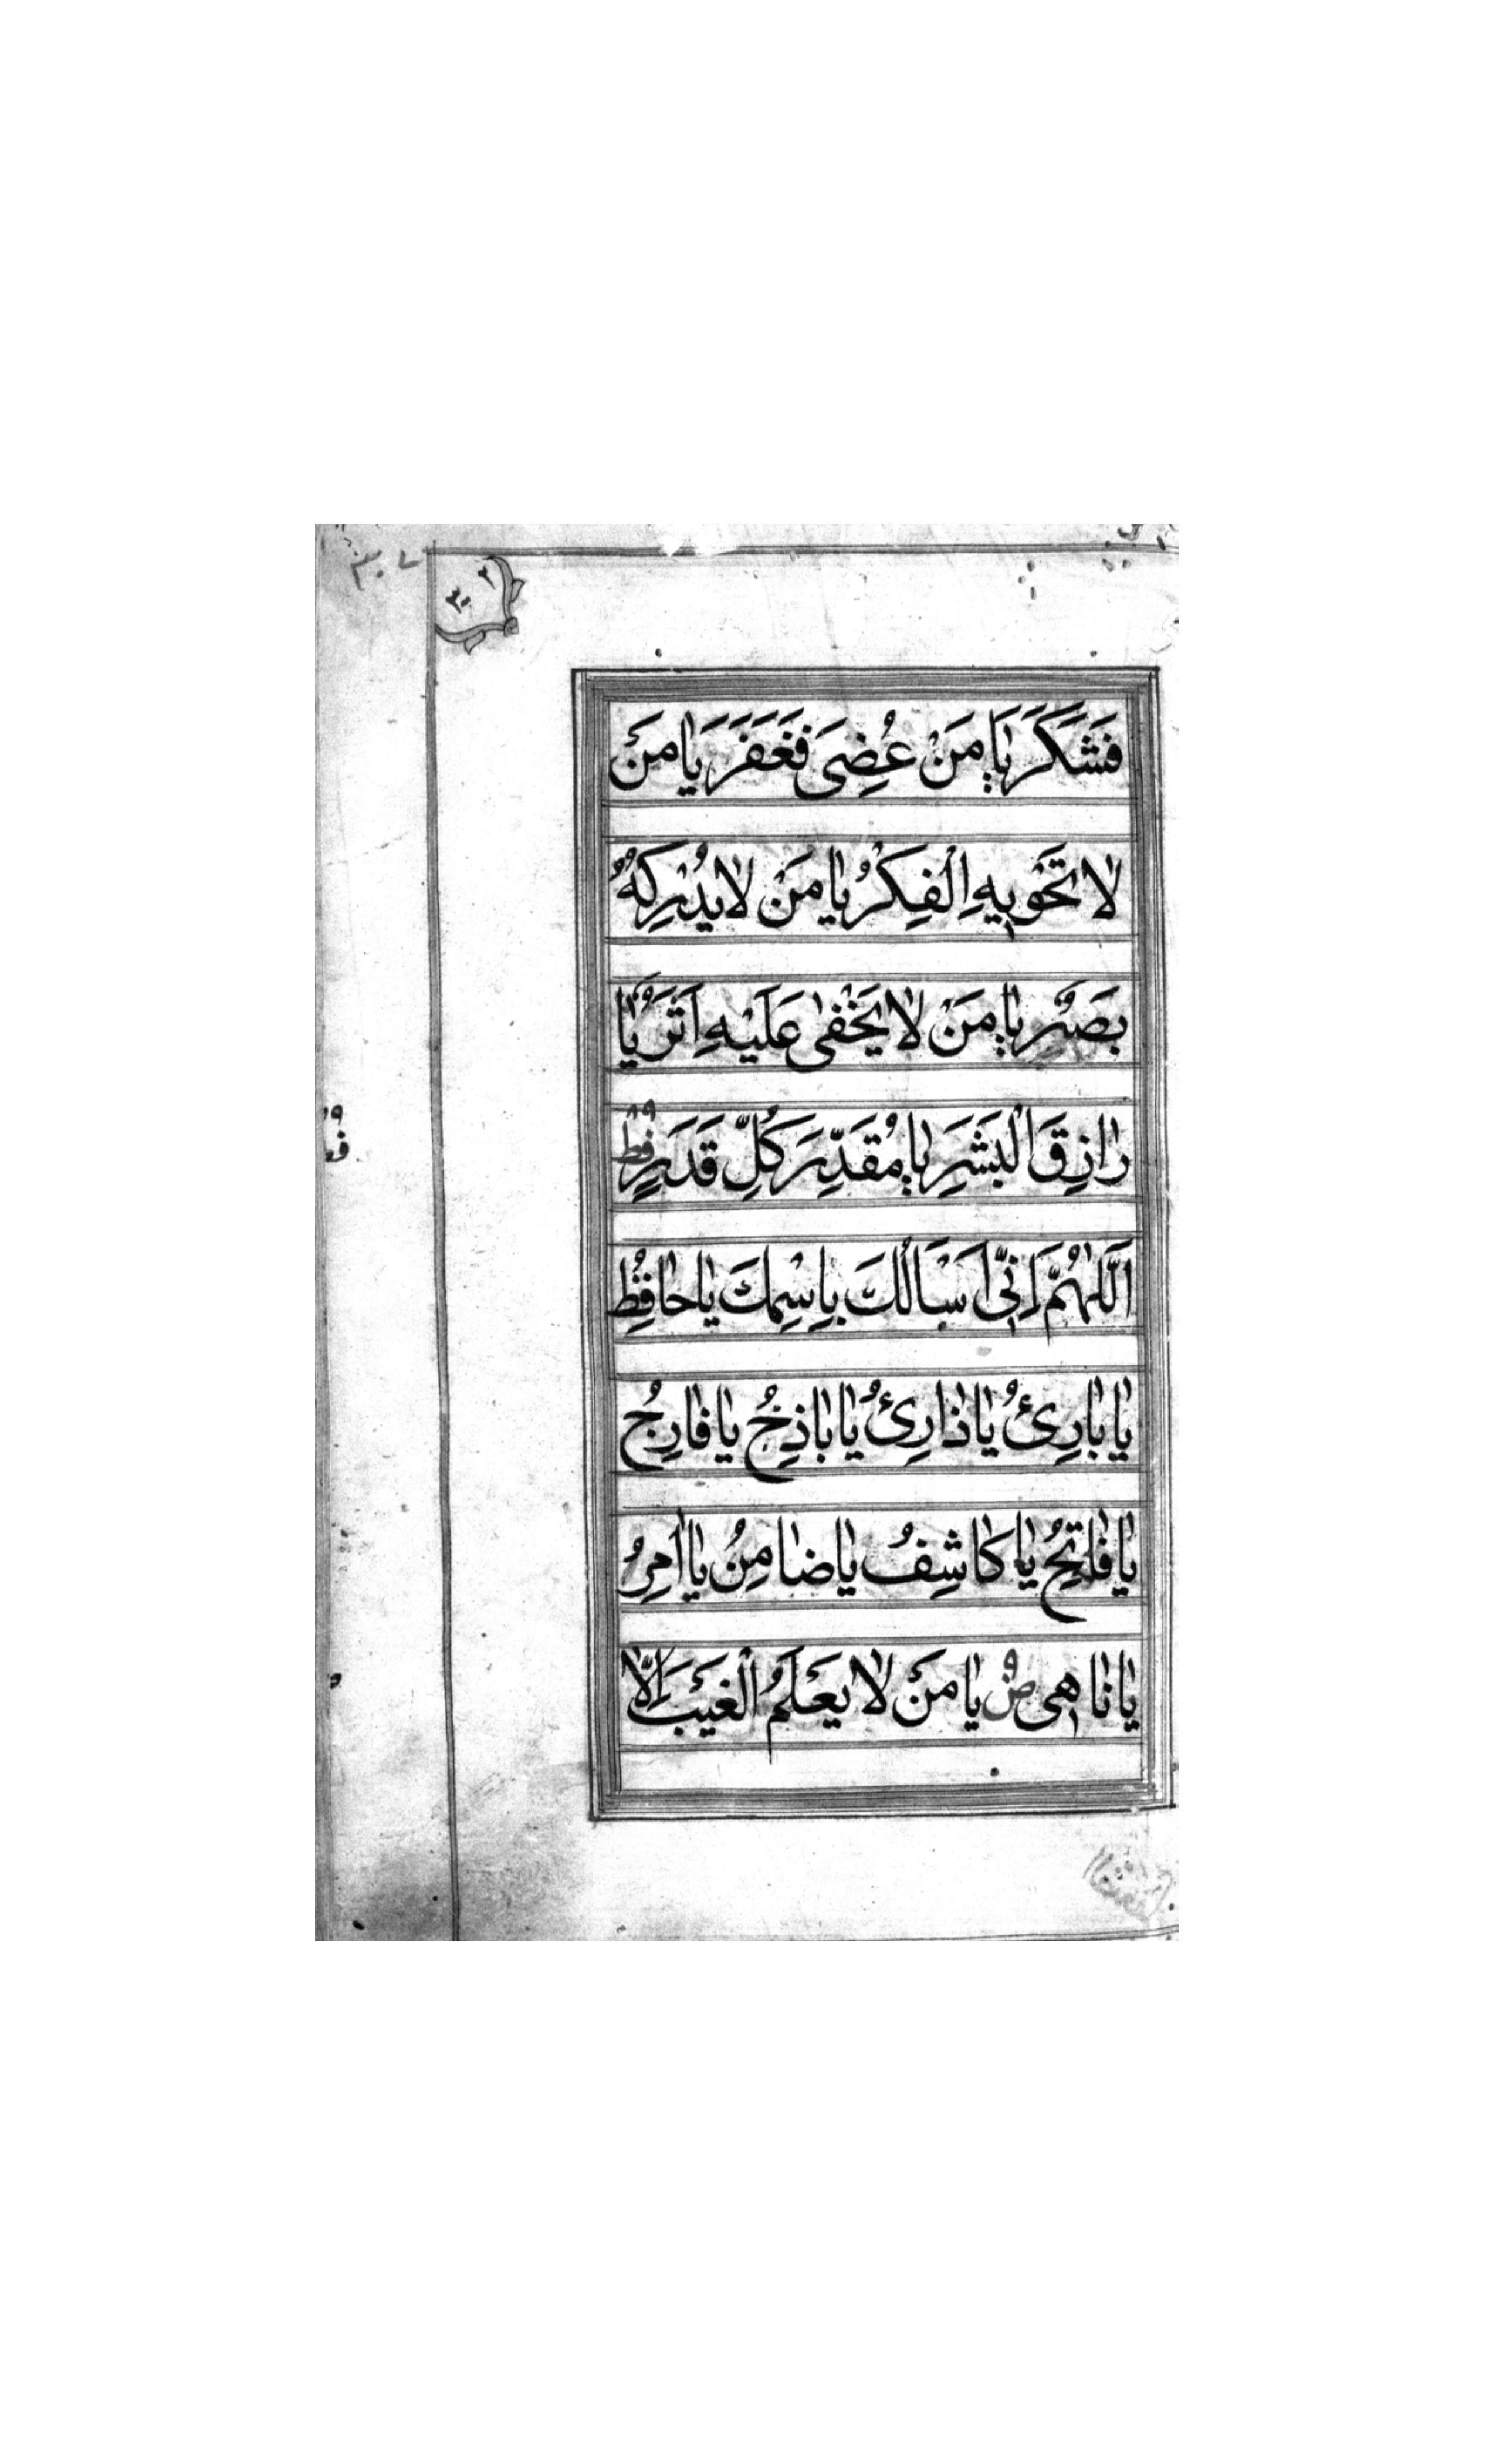 فَشَكَرَ يٰا مَنْ عُصِىَ فَغَفَرَ يٰا مَنْ
لٰا تَحْوٖيهِ الْفِكَرُ يٰا مَنْ لٰا يُدْرِكُهُ
بَصَرٌ يٰا مَنْ لٰا يَخْفىٰ عَلَيْهِ اَثَرٌ يٰا
رٰازِقَ الْبَشَرِ يٰا مُقَدِّرَ كُلِّ قَدَرٍ فط ٨٩
اَللّٰهُمَّ اِنّٖى اَسْاَلُكَ بِاسْمِكَ يٰا حٰافِظُ
يٰا بٰارِئُ يٰا ذٰارِئُ يٰا بٰاذِخُ يٰا فٰارِجُ
يٰا فٰاتِحُ يٰا كٰاشِفُ يٰا ضٰامِنُ يٰا اٰمِرُ
يٰا نٰاهٖى ص ٩ يٰا مَنْ لٰا يَعْلَمُ الْغَيْبَ اِلّٰا